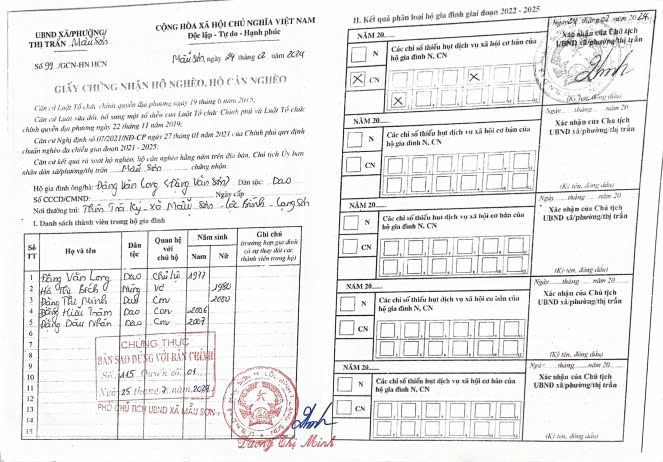 UBND XÃ/PHƯỜNG/
THỊ TRẤN Mẫu Sơn
CỘNG HÒA XÃ HỘI CHỦ NGHĨA VIỆT NAM
Độc lập - Tự do - Hạnh phúc
Số 99 /GCN-HN HCN
Mẫu Sơn, ngày 24 tháng 02 năm 2024
GIẤY CHỨNG NHẬN HỘ NGHÈO, HỘ CẬN NGHÈO
Căn cứ Luật Tổ chức chính quyền địa phương ngày 19 tháng 6 năm 2015;
Căn cứ Luật sửa đổi, bổ sung một số điều của Luật Tổ chức Chính phủ và Luật Tổ
chức chính quyền địa phương ngày 22 tháng 11 năm 2019;
Căn cứ Nghị định số 07/2021/NĐ-CP ngày 27 tháng 01 năm 2021 của Chính phủ quy định
chuẩn nghèo đa chiều giai đoạn 2021 - 2025;
Căn cứ kết quả rà soát hộ nghèo, hộ cận nghèo hằng năm trên địa bàn, Chủ tịch Ủy ban
nhân dân xã/phường/thị trấn Mẫu Sơn chứng nhận:
Hộ gia đình ông/bà: Đặng Văn Long (Đặng Văn Sơn) Dân tộc: Dao
Số CCCD/CMND: Ngày cấp
Nơi thường trú: Thôn Trà Ký - Xã Mẫu Sơn - Lộc Bình - Lạng Sơn
I. Danh sách thành viên trong hộ gia đình
Số TT Họ và tên Dân tộc Quan hệ với chủ hộ Năm sinh Nam Nữ Ghi chú (trường hợp gia đình có sự thay đổi các thành viên trong hộ)
1 Đặng Văn Long Dao Chủ hộ 1977
2 Hà Thị Bích Nùng Vợ 1980
3 Đặng Thị Minh Dao Con 2000
4 Đặng Hiếu Trầm Dao Con 2006
5 Đặng Dấu Nhàn Dao Con 2007
6
7
8
9
10
11
12
13
14
15
CHỨNG THỰC
BẢN SAO ĐÚNG VỚI BẢN CHÍNH
Số 115 Quyển số 01
Ngày 25 tháng 7 năm 2024
PHÓ CHỦ TỊCH UBND XÃ MẪU SƠN
Dương Thị Minh
II. Kết quả phân loại hộ gia đình giai đoạn 2022 - 2025
NĂM 20
N
CN
Các chỉ số thiếu hụt dịch vụ xã hội cơ bản của
hộ gia đình N, CN
Ngày 24 tháng 02 năm 2024
Xác nhận của Chủ tịch
UBND xã/phường/thị trấn
(Ký tên, đóng dấu)
NĂM 20
N
CN
Các chỉ số thiếu hụt dịch vụ xã hội cơ bản của
hộ gia đình N, CN
Ngày tháng năm 20
Xác nhận của Chủ tịch
UBND xã/phường/thị trấn
(Ký tên, đóng dấu)
NĂM 20
N
CN
Các chỉ số thiếu hụt dịch vụ xã hội cơ bản của
hộ gia đình N, CN
Ngày tháng năm 20
Xác nhận của Chủ tịch
UBND xã/phường/thị trấn
(Ký tên, đóng dấu)
NĂM 20
N
CN
Các chỉ số thiếu hụt dịch vụ xã hội cơ bản của
hộ gia đình N, CN
Ngày tháng năm 20
Xác nhận của Chủ tịch
UBND xã/phường/thị trấn
(Ký tên, đóng dấu)
NĂM 20
N
CN
Các chỉ số thiếu hụt dịch vụ xã hội cơ bản của
hộ gia đình N, CN
Ngày tháng năm 20
Xác nhận của Chủ tịch
UBND xã/phường/thị trấn
(Ký tên, đóng dấu)